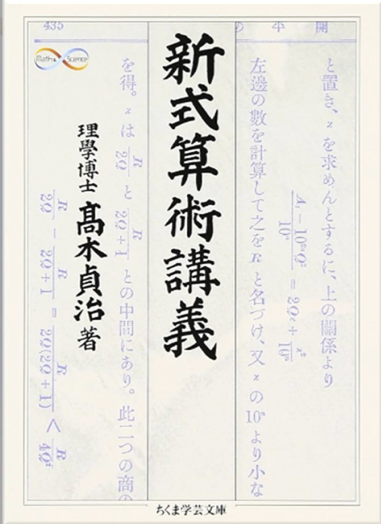 435
開平の
Math & Science
新式算術講義
理學博士 髙木貞治 著
と置き、x を求めんとするに、上の關係より
A − 10²ⁿQ² / 10ⁿ = 2Qx + x² / 10ⁿ
左邊の數を計算して之を R と名づけ、又 x の 10ⁿ より小な
を得。x は R/2Q と R/2Q+1 との中間にあり。此二つの商の
R/2Q − R/2Q+1 = R/2Q(2Q+1) < R/4Q²
ちくま学芸文庫